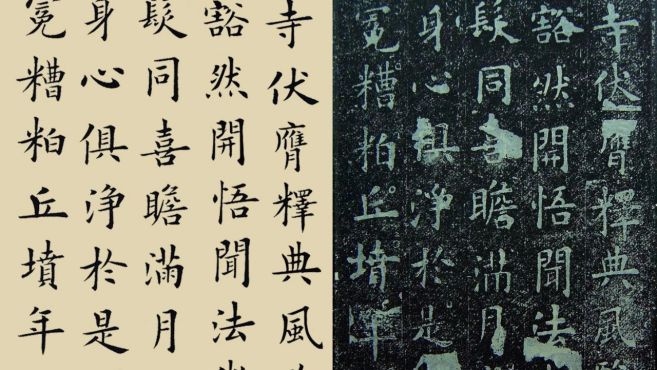 寺伏膺釋典風
豁然開悟聞法
髮同喜瞻滿月
身心俱淨於是
冕糟粕丘墳年
寺伏膺釋典風
豁然開悟聞法
髮同喜瞻滿月
身心俱淨於是
冕糟粕丘墳年